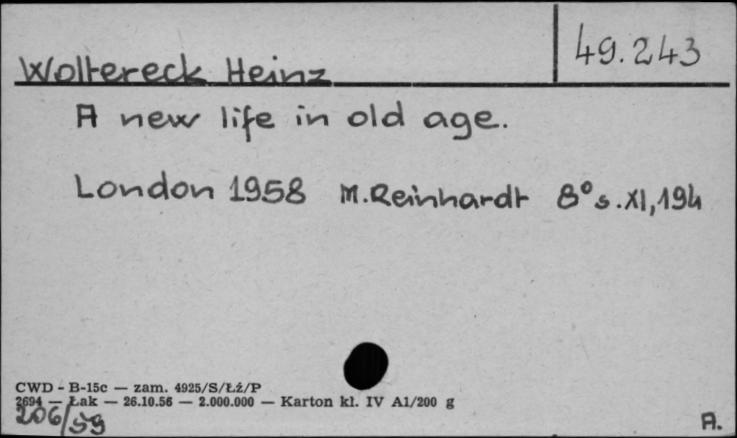 49.243
Woltereck Heinz
A new life in old age.
London 1958 M.Reinhardt 8° s.XI,194
CWD - B-15c — zam. 4925/S/Łż/P
2694 — Łak — 26.10.56 — 2.000.000 — Karton kl. IV A1/200 g
206/59
A.